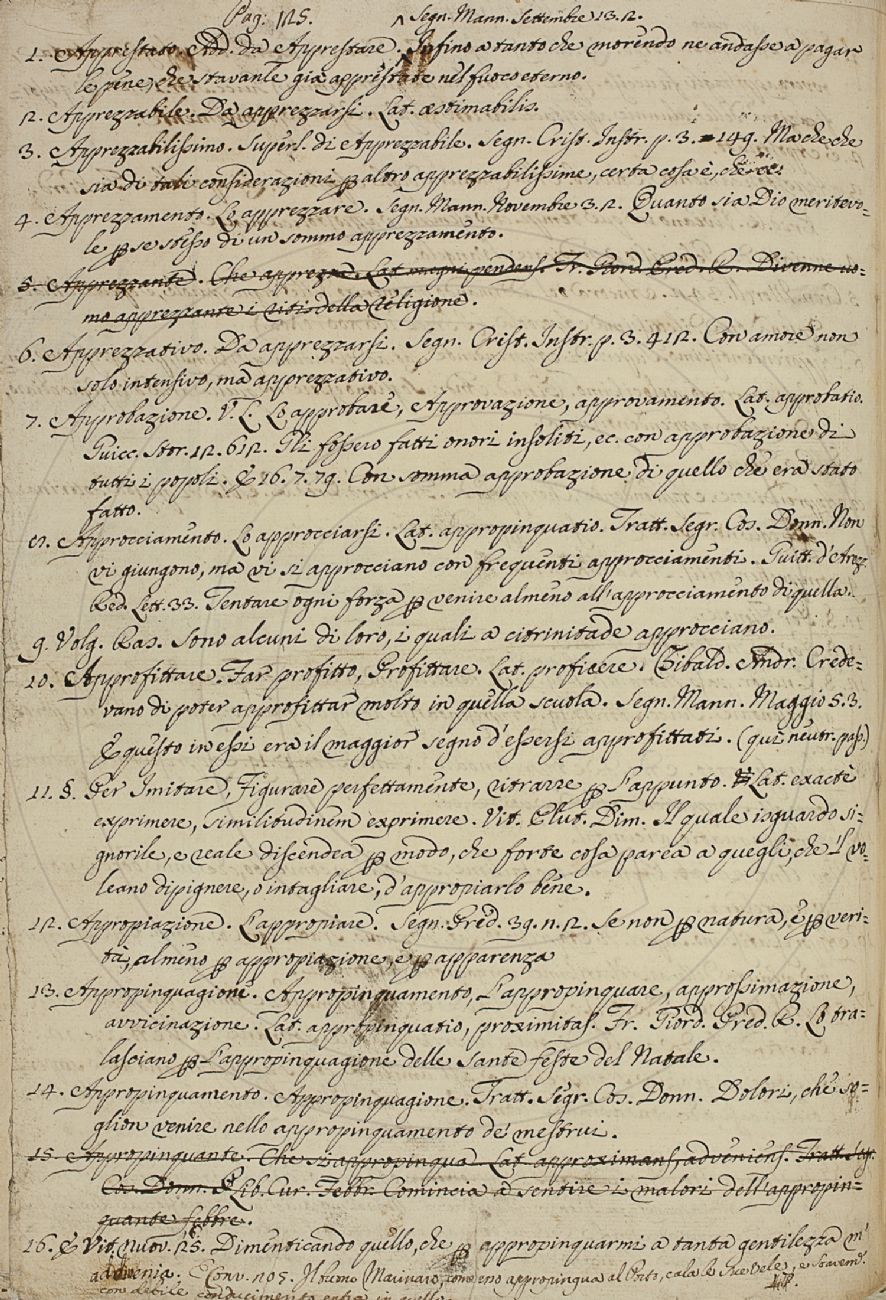 Pag: 125. Segn. Mann. Settembre 13. 2.
1. Apprestato. Add. da Apprestare. Infino a tanto che morendo ne andasse a pagar
le pene, che stavanle già apprestate nel fuoco eterno.
2. Apprezzabile. Da apprezzarsi. Lat. æstimabilis.
3. Apprezzabilissimo. Superl. di Apprezzabile. Segn. Crist. Instr. p. 3. 149. Ma che che
sia di tali considerazioni ꝑ altro apprezzabilissime, certa cosa è, che ec.
4. Apprezzamento. Lo apprezzare. Segn. Mann. Novembre 3. 2. Quanto sia Dio meritevo-
le ꝑ se stesso di un sommo apprezzamento.
5. Apprezzante. Che apprezza. Lat. magni pendens. Fr. Giord. Pred. R. Divenne uo-
mo apprezzante i riti della religione.
6. Apprezzativo. Da apprezzarsi. Segn. Crist. Instr. p. 3. 412. Con amore non
solo intensivo, ma apprezzativo.
7. Approbazione. V. L. Lo approbare, Approvazione, approvamento. Lat. approbatio.
Guicc. Stor. 12. 612. Gli fossero fatti onori insoliti, ec. con approbazione di
tutti i popoli. E 16. 7. 79. Con somma approbazione di quello che era stato
fatto.
8. Approcciamento. Lo approcciarsi. Lat. appropinquatio. Tratt. Segr. Cos. Donn. Non
vi giungono, ma vi si approcciano con frequenti approcciamenti. Guitt. d'Arez.
Red. Lett. 33. Tentare ogni forza ꝑ venire almeno all'approcciamento di quella.
9. Volg. Ras. Sono alcuni di loro, i quali a citrinitade approcciano.
10. Approfittare. Far profitto, Profittare. Lat. proficere. Tibald. Andr. Crede-
vano di poter approfittar molto in quella scuola. Segn. Mann. Maggio 5. 3.
E questo in essi era il maggior segno d'essersi approfittati. (qui neutr. pass.)
11. §. Per Imitare, Figurare perfettamente, ritrarre ꝑ l'appunto. Lat. exactè
exprimere, similitudinem exprimere. Vit. Plut. Dim. Il quale isguardo si-
gnorile, e reale discendea ꝑ modo, che forte cosa parea a quegli, che 'l vo-
leano dipignere, o intagliare, d'appropiarlo bene.
12. Appropiazione. L'appropiare. Segn. Pred. 39. n. 2. Se non ꝑ natura, e ꝑ veri-
tà, almeno ꝑ appropiazione, e ꝑ apparenza
13. Appropinquagione. Appropinquamento, L'appropinquare, approssimazione,
avvicinazione. Lat. appropinquatio, proximitas. Fr. Giord. Pred. R. Lo tra-
lasciano ꝑ l'appropinquagione delle sante feste del Natale.
14. Appropinquamento. Appropinquagione. Tratt. Segr. Cos. Donn. Dolori, che so-
glion venire nello appropinquamento de' mestrui.
15. Appropinquante. Che si appropinqua. Lat. approximans, adveniens. Tratt. Segr.
Cos. Donn. Lib. Cur. Febbr. Comincia a sentire i malori dell'appropin-
quante febbre.
16. E Vit. nuov. 25. Dimenticando quello, che ꝑ appropinquarmi a tanta gentilezza m'
advenia. E Conv. 205. Il buono Marinaro, come esso appropingua al Porto, cala le sue vele, e soavem.
con debile conducimento entra in quello.